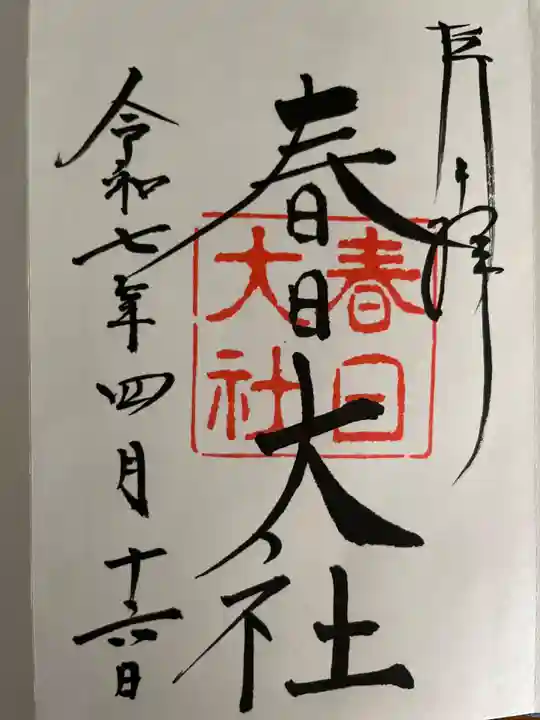 春日大社
春日
大社
令和七年四月十六日